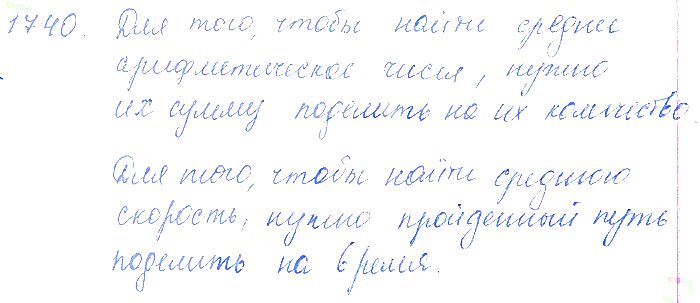 1740. Для того, чтобы найти среднее
арифметическое чисел, нужно
их сумму поделить на их количество
Для того, чтобы найти среднюю
скорость, нужно пройденный путь
поделить на время.